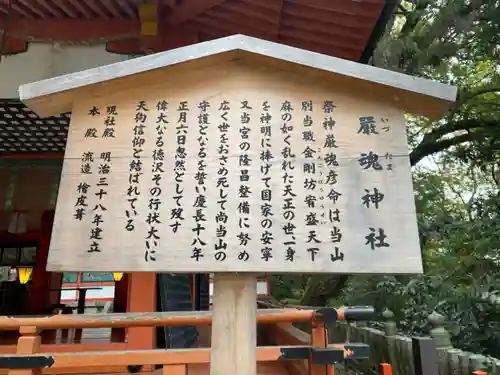 厳魂神社
いづたま
祭神厳魂彦命は当山
別当職金剛坊宥盛天下
こんごうぼうゆうせい
麻の如く乱れた天正の世一身
を神明に捧げて国家の安寧
又当宮の隆昌整備に努め
広く世をおさめ死して尚当山の
守護どなるを誓い慶長十八年
正月六日忽然として歿す
偉大なる徳沢その行状大いに
天狗信仰と結ばれている
現社殿 明治三十八年建立
本殿 流造 檜皮葺